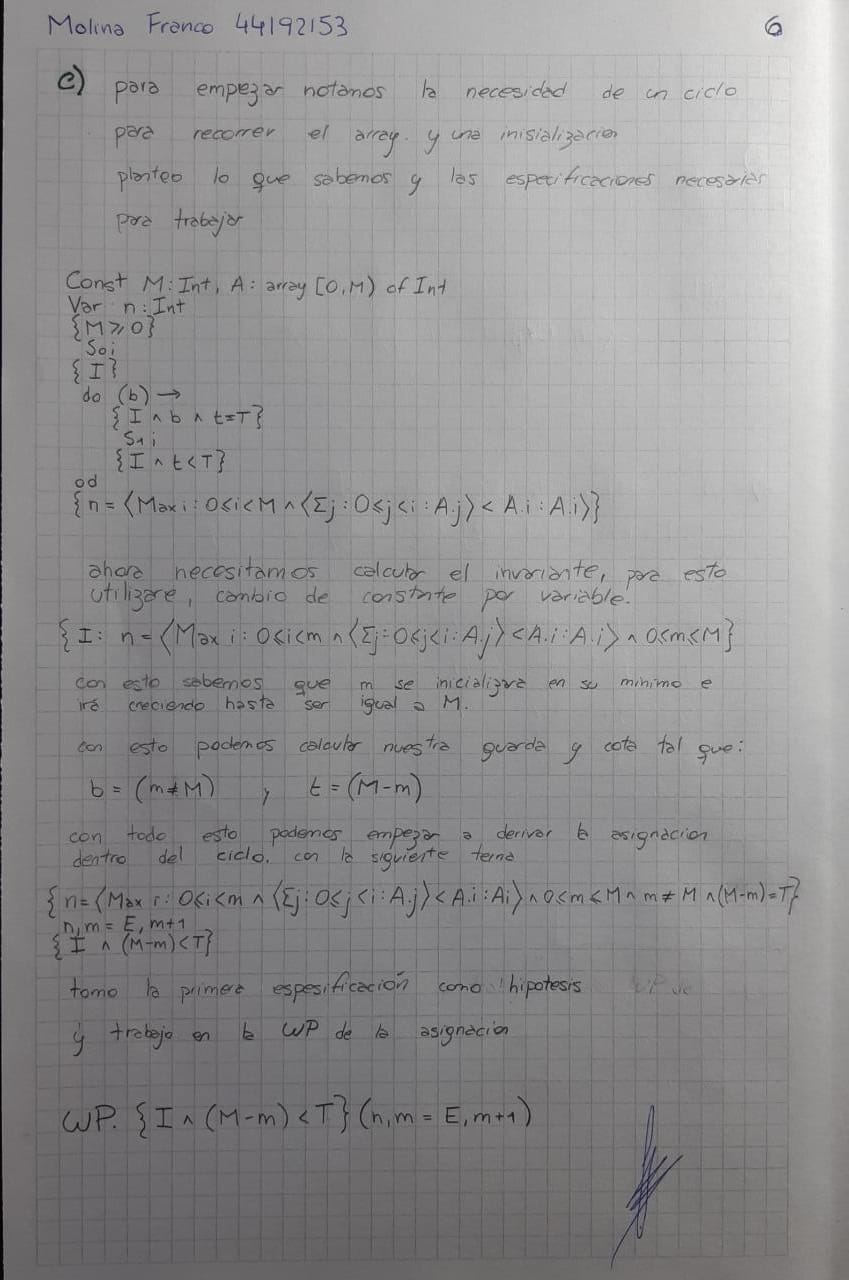 Molina Franco 44192153 6
c) para empezar notamos la necesidad de un ciclo
para recorrer el array. y una inisializacion
planteo lo que sabemos y las especificaciones necesarias
para trabajar
Const M: Int, A: array [0,M) of Int
Var n: Int
{M ≥ 0}
S0;
{I}
do (b) →
{I ∧ b ∧ t=T}
S1;
{I ∧ t<T}
od
{n = ⟨Max i: 0≤i<M ∧ ⟨Σj: 0≤j<i: A.j⟩ < A.i : A.i⟩}
ahora necesitamos calcular el invariante, para esto
utilizare, cambio de constante por variable.
{I: n = ⟨Max i: 0≤i<m ∧ ⟨Σj: 0≤j<i: A.j⟩ < A.i : A.i⟩ ∧ 0≤m≤M}
con esto sabemos que m se inicializara en su minimo e
irá creciendo hasta ser igual a M.
con esto podemos calcular nuestra guarda y cota tal que:
b = (m≠M) , t = (M-m)
con todo esto podemos empezar a derivar la asignacion
dentro del ciclo, con la siguiente terna
{n=⟨Max i: 0≤i<m ∧ ⟨Σj: 0≤j<i: A.j⟩ < A.i : Ai⟩ ∧ 0≤m≤M ∧ m≠M ∧ (M-m)=T}
n,m = E, m+1
{I ∧ (M-m)<T}
tomo la primera espesificación como hipotesis
y trabajo en la WP de la asignación
WP. {I ∧ (M-m) < T} (n,m = E, m+1)